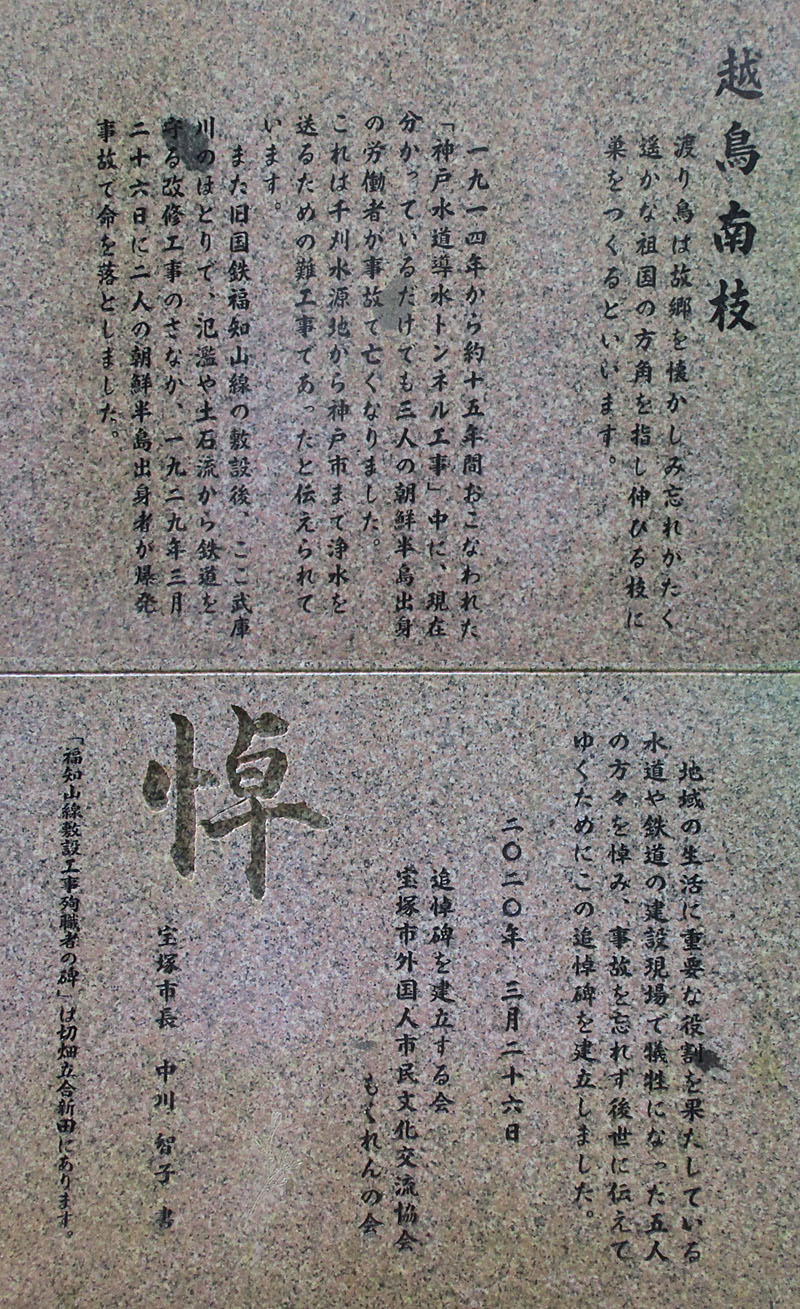 越鳥南枝
渡り鳥は故郷を懐かしみ忘れがたく
遥かな祖国の方角を指し伸びる枝に
巣をつくるといいます。
一九一四年から約十五年間おこなわれた
「神戸水道導水トンネル工事」中に、現在
分かっているだけでも三人の朝鮮半島出身
の労働者が事故で亡くなりました。
これは千刈水源地から神戸市まで浄水を
送るための難工事であったと伝えられて
います。
また旧国鉄福知山線の敷設後、ここ武庫
川のほとりで、氾濫や土石流から鉄道を
守る改修工事のさなか、一九二九年三月
二十六日に二人の朝鮮半島出身者が爆発
事故で命を落としました。
地域の生活に重要な役割を果たしている
水道や鉄道の建設現場で犠牲になった五人
の方々を悼み、事故を忘れず後世に伝えて
ゆくためにこの追悼碑を建立しました。
二〇二〇年 三月二十六日
追悼碑を建立する会
宝塚市外国人市民文化交流協会
もくれんの会
悼
宝塚市長 中川 智子 書
「福知山線敷設工事殉職者の碑」は切畑立合新田にあります。